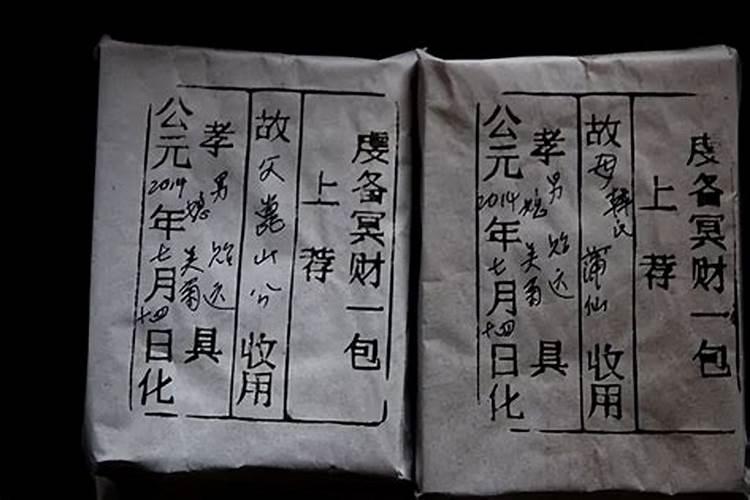 虔备冥财一包
上荐
故父嵩山公收用
孝男 贻远 具
媳 美菊
公元2014年七月十四日化
虔备冥财一包
上荐
故母韩氏 蒲仙收用
孝男 贻远 具
媳 美菊
公元2014年七月十四日化